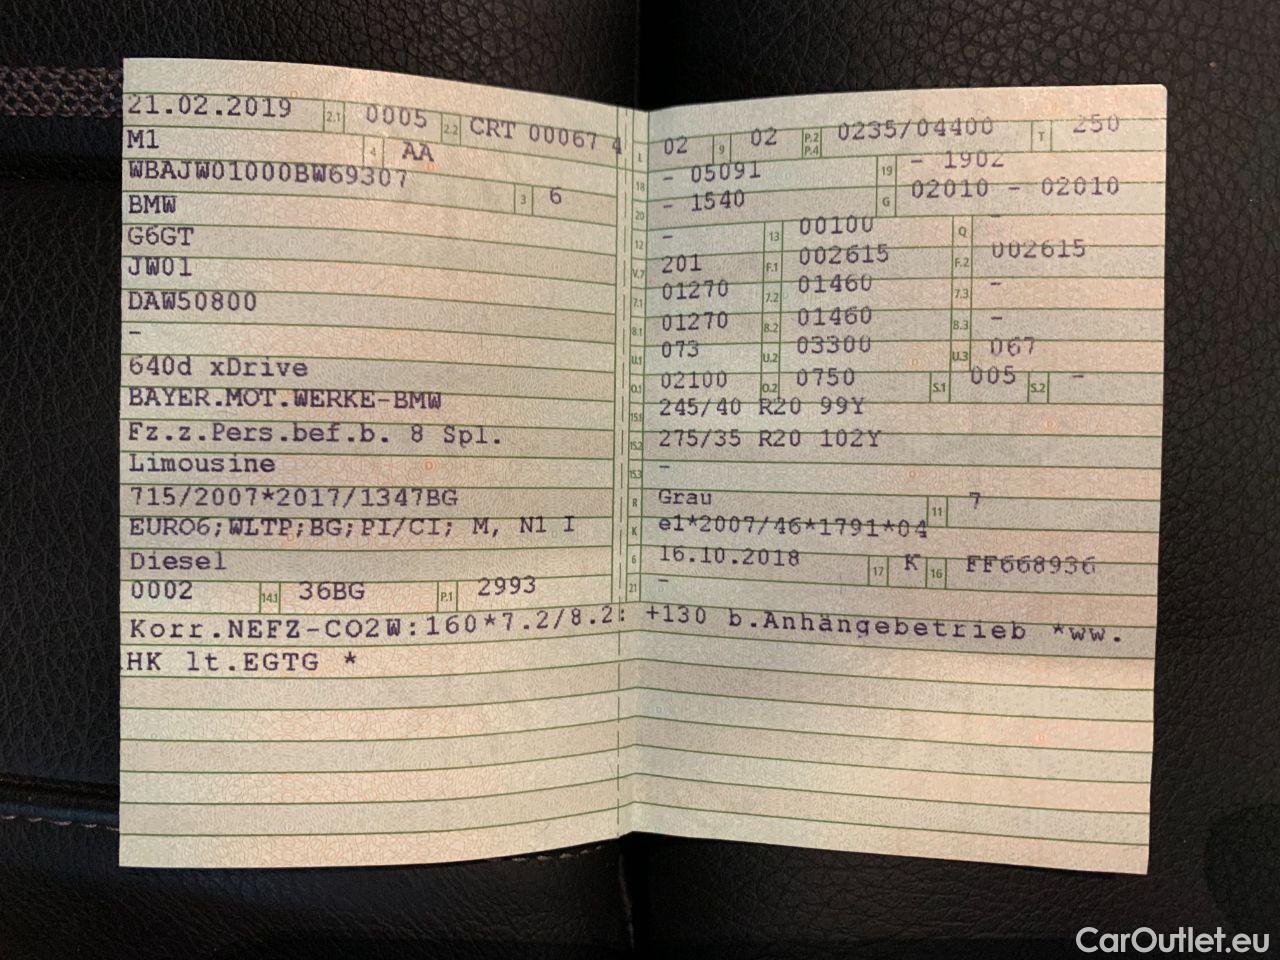 21.02.2019 2.1 0005 2.2 CRT 00067 4
M1 4 AA
WBAJW01000BW69307 3 6
BMW
G6GT
JW01
DAW50800
–
640d xDrive
BAYER.MOT.WERKE-BMW
Fz.z.Pers.bef.b. 8 Spl.
Limousine
715/2007*2017/1347BG
EURO6;WLTP;BG;PI/CI; M, N1 I
Diesel
0002 14.1 36BG P.1 2993
L 02 9 02 P.2 P.4 0235/04400 T 250
18 - 05091 19 - 1902
20 - 1540 G 02010 - 02010
12 - 13 00100 Q -
V.7 201 F.1 002615 F.2 002615
7.1 01270 7.2 01460 7.3 -
8.1 01270 8.2 01460 8.3 -
U.1 073 U.2 03300 U.3 067
O.1 02100 O.2 0750 S.1 005 S.2 -
15.1 245/40 R20 99Y
15.2 275/35 R20 102Y
15.3 -
R Grau 11 7
K e1*2007/46*1791*04
6 16.10.2018 17 K 16 FF668936
21 -
Korr.NEFZ-CO2W:160*7.2/8.2: +130 b.Anhängebetrieb *ww.
HK lt.EGTG *
CarOutlet.eu